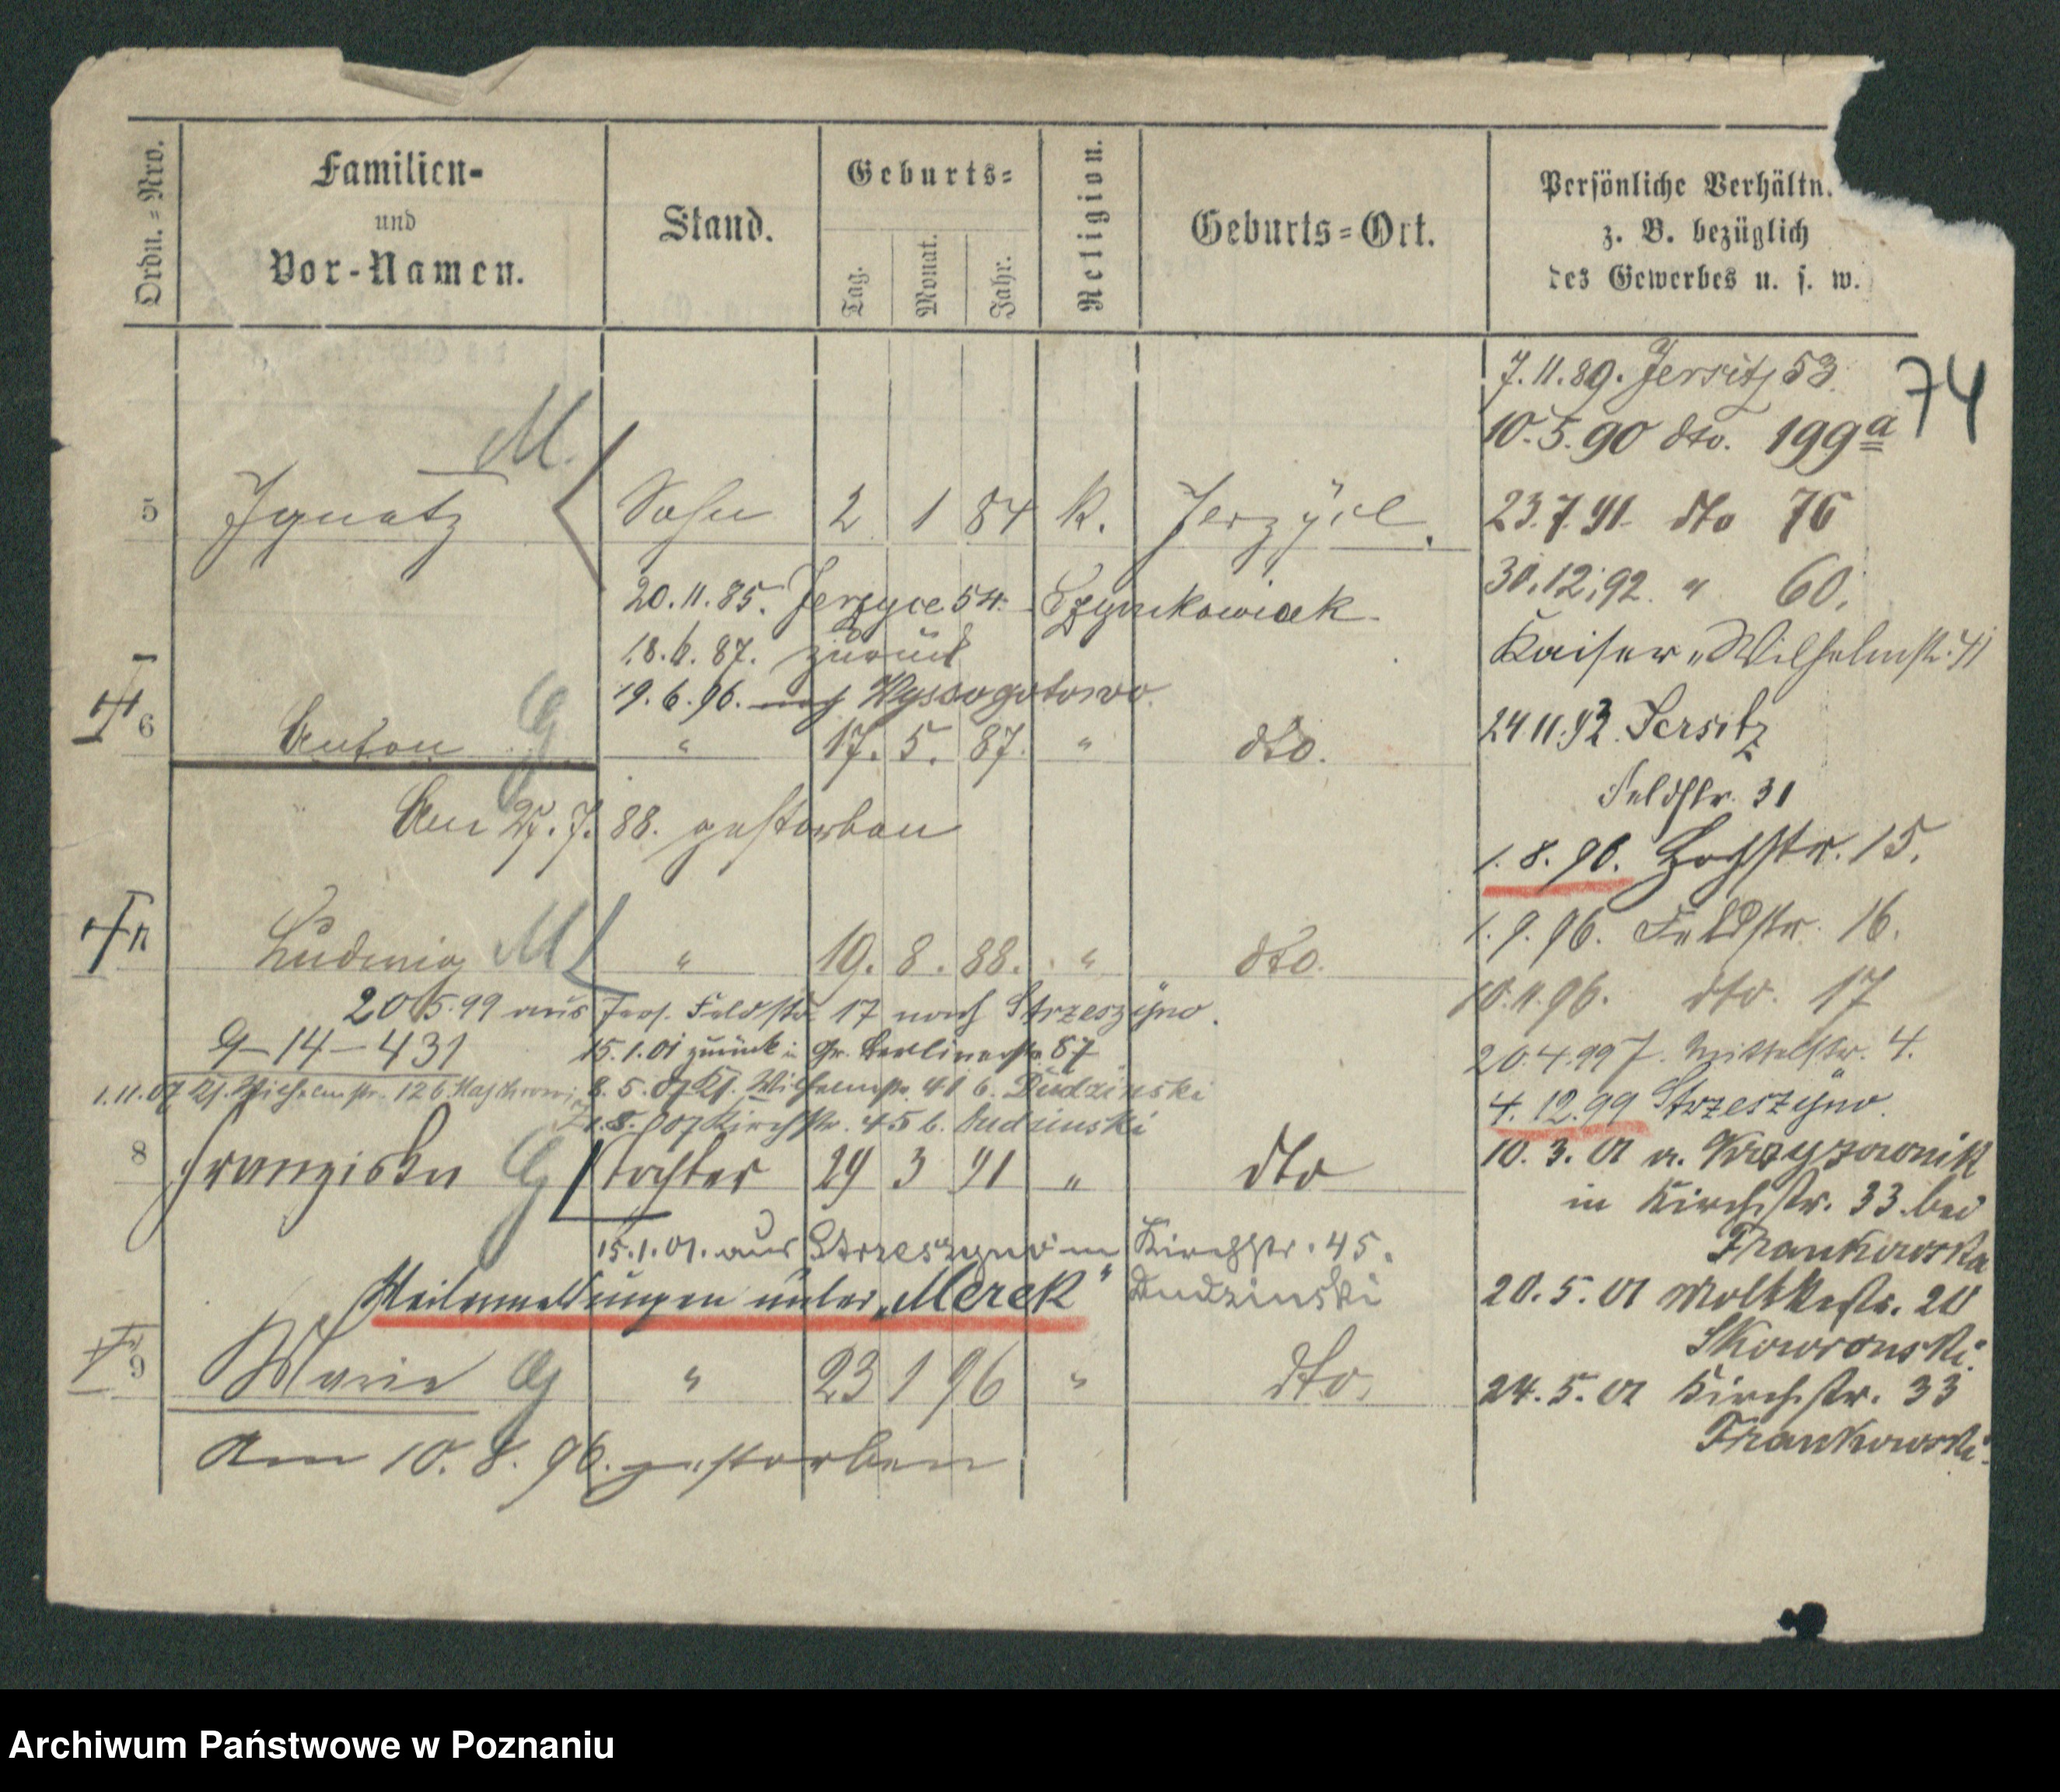 Ordn.=Nro.
Familien-
und
Vor-Namen.
Stand.
Geburts=
Tag.
Monat.
Jahr.
Religion.
Geburts=Ort.
Persönliche Verhältn.
z. B. bezüglich
des Gewerbes u. s. w.
74
7.11.89. Jersitz 53.
10.5.90 dto. 199a
M.
5 Ignatz Sohn 2 1 84 k. Jerzyce.
23.7.91 dto 76
20.11.85. Jerzyce 54. Czynkowiak.
30.12.92. " 60.
18.6.87. zurück
Kaiser-Wilhelmstr. 41
19.6.96. nach Wyssogotowo.
6 Anton G " 17. 5. 87. " dto.
24.11.93. Jersitz
Feldstr. 31
Am 27.7.88. gestorben
1.8.96. Hochstr. 15.
Ludwig M " 19. 8. 88. " dto.
1.9.96. Feldstr. 16.
20.5.99 aus Jers. Feldstr. 17 nach Strzeszyno.
10.11.96. dto. 17
9-14-431
15.1.01 zurück in Gr. Berlinerstr. 87
20.4.99 J. Mittelstr. 4.
1.11.07 Kl. Wilhelmstr. 12 b.
8.5.07 Kl. Wilhelmstr. 41 b. Dudzinski
4.12.99 Strzeszyno.
1.8.907 Kirchstr. 45 b. Dudzinski
8 Franziska G Tochter 29 3 91 " dto
10.3.01 a. Krzyzownik
in Kirchstr. 33 bei
Frankowska
15.1.01. aus Strzeszyno in Kirchstr. 45.
Dudzinski
unter "Merek"
20.5.01 Moltkestr. 20
Skowronski.
9 Marie G " 23 1 96 " dto.
24.5.01 Kirchstr. 33
Frankowski.
Am 10.8.96. gestorben
Archiwum Państwowe w Poznaniu